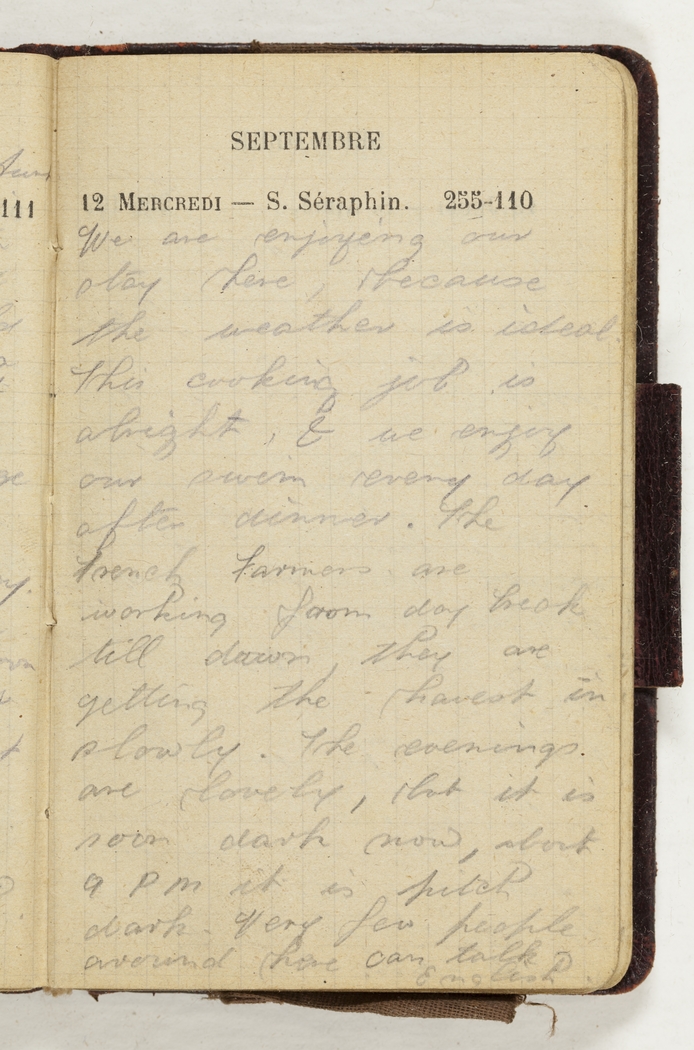 SEPTEMBRE
111
12 MERCREDI — S. Séraphin. 255-110
We are enjoying our
stay here, because
the weather is ideal.
This cooking job is
alright, & we enjoy
our swim every day
after dinner. The
French Farmers are
working from day break
till dawn, they are
getting the havest in
slowly. The evenings
are lovely, but it is
soon dark now, about
9 P m it is pitch
dark. Very few people
around here can talk
English.